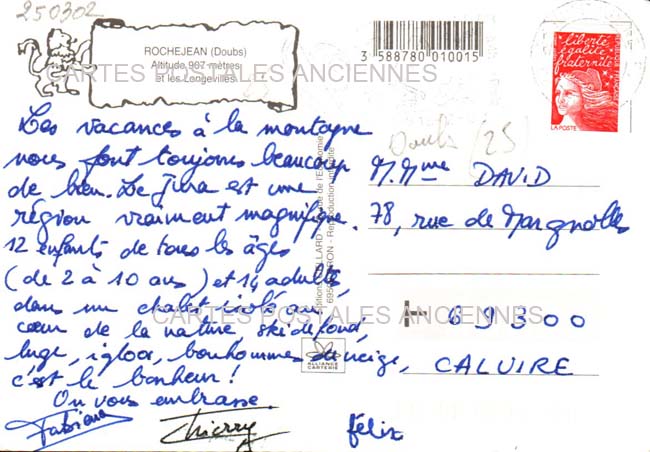 250302
ROCHEJEAN (Doubs)
Altitude 967 mètres
et les Longevilles
3 588780 010015
liberté
égalité
fraternité
LA POSTE
CARTES POSTALES ANCIENNES
Doubs (25)
Les vacances à la montagne
nous font toujours beaucoup
de bien. Le Jura est une
région vraiment magnifique.
12 enfants de tous les âges
(de 2 à 10 ans) et 14 adultes,
dans un chalet isolé au
cœur de la nature, ski de fond,
luge, igloos, bonhommes de neige,
c'est le bonheur !
On vous embrasse.
Fabienne
Thierry
félix
M. Mme DAVID
78, rue de Margnolles
A- 69300
CALUIRE
CARTES POSTALES ANCIENNES
Reproduction interdite
ALLIANCE
CARTERIE